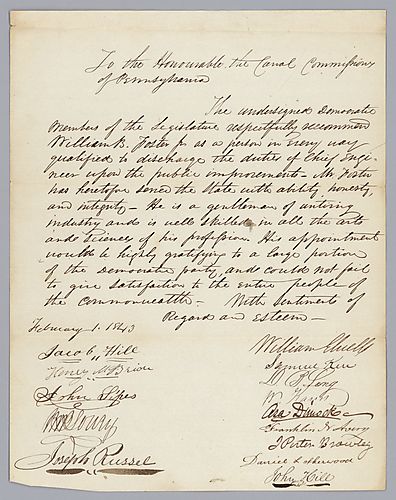 To the Honourable the Canal Commissioners
of Pennsylvania
The undersigned Democratic
Members of the Legislature respectfully recommend
William B. Foster Jr as a person in every way
qualified to discharge the duties of Chief Engi-
neer upon the public improvements - Mr Foster
has heretofore served the State with ability honesty
and integrity - He is a gentleman of untiring
industry and is well skilled in all the arts
and Sciences of his profession. His appointment
would be highly gratifying to a large portion
of the democratic party, and could not fail
to give satisfaction to the entire people of
the Commonwealth - With Sentiments of
Regard and Esteem -
February 1. 1843
Jacob Hill
John Sipes
Joseph Russel
William
Samuel
Asa Dimock
Franklin
J Porter Brawley
Daniel
John Hill